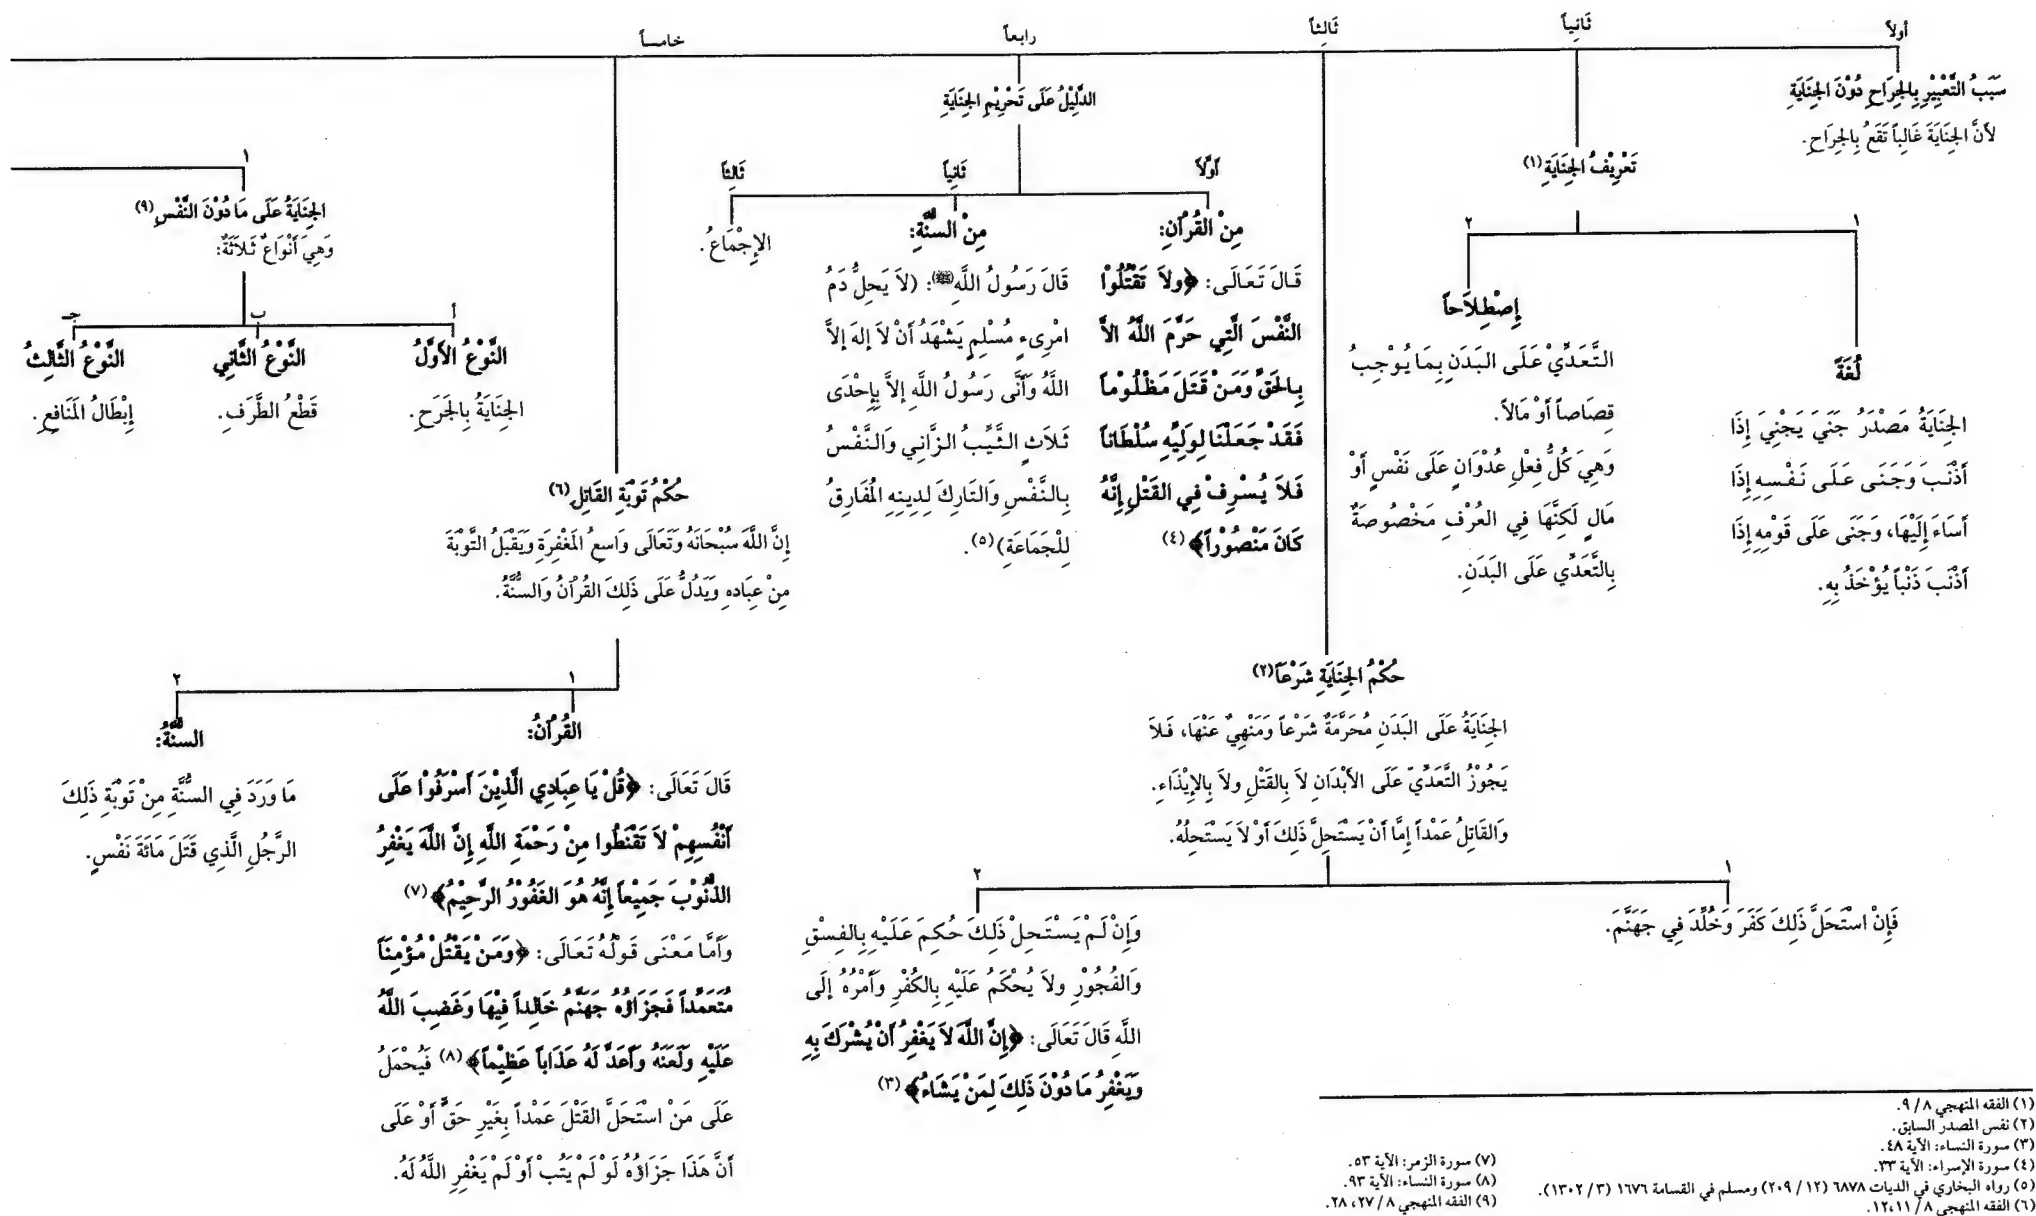 أولاً
سَبَبُ التَّعْبِيْرِ بِالجِرَاحِ دُوْنَ الجِنَايَةِ
لأَنَّ الجِنَايَةَ غَالِباً تَقَعُ بِالجِرَاحِ.
ثَانِياً
تَعْرِيْفُ الجِنَايَةِ (١)
١
لُغَةً
الجِنَايَةُ مَصْدَرُ جَنَيَ يَجْنِيَ إِذَا
أَذْنَبَ وَجَنَى عَلَى نَفْسِهِ إِذَا
أَسَاءَ إِلَيْهَا، وَجَنَى عَلَى قَوْمِهِ إِذَا
أَذْنَبَ ذَنْباً يُؤْخَذُ بِهِ.
٢
إِصْطِلاَحاً
التَّعَدِّيْ عَلَى البَدَنِ بِمَا يُوْجِبُ
قِصَاصاً أَوْ مَالاً.
وَهِيَ كُلُّ فِعْلِ عُدْوَانٍ عَلَى نَفْسٍ أَوْ
مَالٍ لَكِنَّهَا فِي العُرْفِ مَخْصُوصَةٌ
بِالتَّعَدِّي عَلَى البَدَنِ.
ثَالِثاً
حُكْمُ الجِنَايَةِ شَرْعَاً (٢)
الجِنَايَةُ عَلَى البَدَنِ مُحَرَّمَةٌ شَرْعاً وَمَنْهِيٌ عَنْهَا، فَلاَ
يَجُوْزُ التَّعَدِّيّ عَلَى الأَبْدَانِ لاَ بِالقَتْلِ ولاَ بِالإِيْذَاءِ.
وَالقَاتِلُ عَمْداً إِمَّا أَنْ يَسْتَحِلَّ ذَلِكَ أَوْ لاَ يَسْتَحِلُهُ.
١
فَإِنْ اسْتَحَلَّ ذَلِكَ كَفَرَ وَخُلِّدَ فِي جَهَنَّمَ.
٢
وَإِنْ لَمْ يَسْتَحِلْ ذَلِكَ حُكِمَ عَلَيْهِ بِالفِسْقِ
وَالفُجُوْرِ ولاَ يُحْكَمُ عَلَيْهِ بِالكُفْرِ وَأَمْرُهُ إِلَى
اللَّهِ قَالَ تَعَالَى: ﴿إِنَّ اللَّهَ لاَ يَغْفِرُ أَنْ يُشْرَكَ بِهِ
وَيَغْفِرُ مَا دُوْنَ ذَلِكَ لِمَنْ يَشَاءُ﴾ (٣)
رابعاً
الدَّلِيْلُ عَلَى تَحْرِيْمِ الجِنَايَةِ
أَوَّلاً
مِنْ القُرْآنِ:
قَالَ تَعَالَى: ﴿وَلاَ تَقْتُلُوْا
النَّفْسَ الَّتِي حَرَّمَ اللَّهُ الاَّ
بِالحَقِّ وَمَنْ قَتَلَ مَظْلُوْماً
فَقَدْ جَعَلْنَا لِوَلِيِّهِ سُلْطَاناً
فَلاَ يُسْرِفْ فِي القَتْلِ إِنَّهُ
كَانَ مَنْصُوْراً﴾ (٤)
ثَانِياً
مِنْ السُّنَّةِ:
قَالَ رَسُولُ اللَّهِ ﷺ: (لاَ يَحِلُّ دَمُ
امْرِىءٍ مُسْلِمٍ يَشْهَدُ أَنْ لاَ إلهَ إلاَّ
اللَّهُ وَأَنَّى رَسُولُ اللَّهِ إلاَّ بِإِحْدَى
ثَلاَثٍ الثَّيِّبُ الزَّانِي وَالنَّفْسُ
بِالنَّفْسِ وَالتَارِكَ لِدِينِهِ المُفَارِقُ
لِلْجَمَاعَةِ) (٥).
ثَالِثاً
الإِجْمَاعُ.
خامساً
حُكْمُ تَوْبَةِ القَاتِلِ (٦)
إِنَّ اللَّهَ سُبْحَانَهُ وَتَعَالَى وَاسِعُ المَغْفِرَةِ وَيَقْبَلُ التَّوْبَةَ
مِنْ عِبَادِهِ وَيَدَلُّ عَلَى ذَلِكَ القُرْآنُ وَالسُّنَّةُ.
١
القُرْآنُ:
قَالَ تَعَالَى: ﴿قُلْ يَا عِبَادِي الَّذِيْنَ أَسْرَفُوْا عَلَى
أَنْفُسِهِمْ لاَ تَقْنَطُوا مِنْ رَحْمَةِ اللَّهِ إِنَّ اللَّهَ يَغْفِرُ
الذُّنُوْبَ جَمِيْعاً إِنَّهُ هُوَ الغَفُوْرُ الرَّحِيْمُ﴾ (٧)
وَأَمَّا مَعْنَى قَوْلُهُ تَعَالَى: ﴿وَمَنْ يَقْتُلْ مُؤْمِنَاً
مُتَعَمِّداً فَجَزَاؤُهُ جَهَنَّمُ خَالِداً فِيْهَا وَغَضِبَ اللَّهُ
عَلَيْهِ وَلَعَنَهُ وَأَعَدَّ لَهُ عَذَاباً عَظِيْماً﴾ (٨) فَيُحْمَلُ
عَلَى مَنْ اسْتَحَلَّ القَتْلَ عَمْداً بِغَيْرِ حَقٍّ أَوْ عَلَى
أَنَّ هَذَا جَزَاؤُهُ لَوْ لَمْ يَتُبْ أَوْ لَمْ يَغْفِرِ اللَّهُ لَهُ.
٢
السُّنَّةُ:
مَا وَرَدَ فِي السُّنَّةِ مِنْ تَوْبَةِ ذَلِكَ
الرَّجُلِ الَّذِي قَتَلَ مَائَةَ نَفْسٍ.
١
الجِنَايَةُ عَلَى مَا دُوْنَ النَّفْسِ (٩)
وَهِيَ أَنْوَاعٌ ثَلاَثَةٌ:
أ
النَّوْعُ الأَوَّلُ
الجِنَايَةُ بِالجَرَحِ.
ب
النَّوْعُ الثَّانِي
قَطْعُ الطَّرَفِ.
جـ
النَّوْعُ الثَّالِثُ
إِبْطَالُ المَنَافِعِ.
(١) الفقه المنهجي ٨ / ٩.
(٢) نفس المصدر السابق.
(٣) سورة النساء: الآية ٤٨.
(٤) سورة الإسراء: الآية ٣٣.
(٥) رواه البخاري في الديات ٦٨٧٨ (١٢ / ٢٠٩) ومسلم في القسامة ١٦٧٦ (٣ / ١٣٠٢).
(٦) الفقه المنهجي ٨ / ١١،١٢.
(٧) سورة الزمر: الآية ٥٣.
(٨) سورة النساء: الآية ٩٣.
(٩) الفقه المنهجي ٨ / ٢٧، ٢٨.